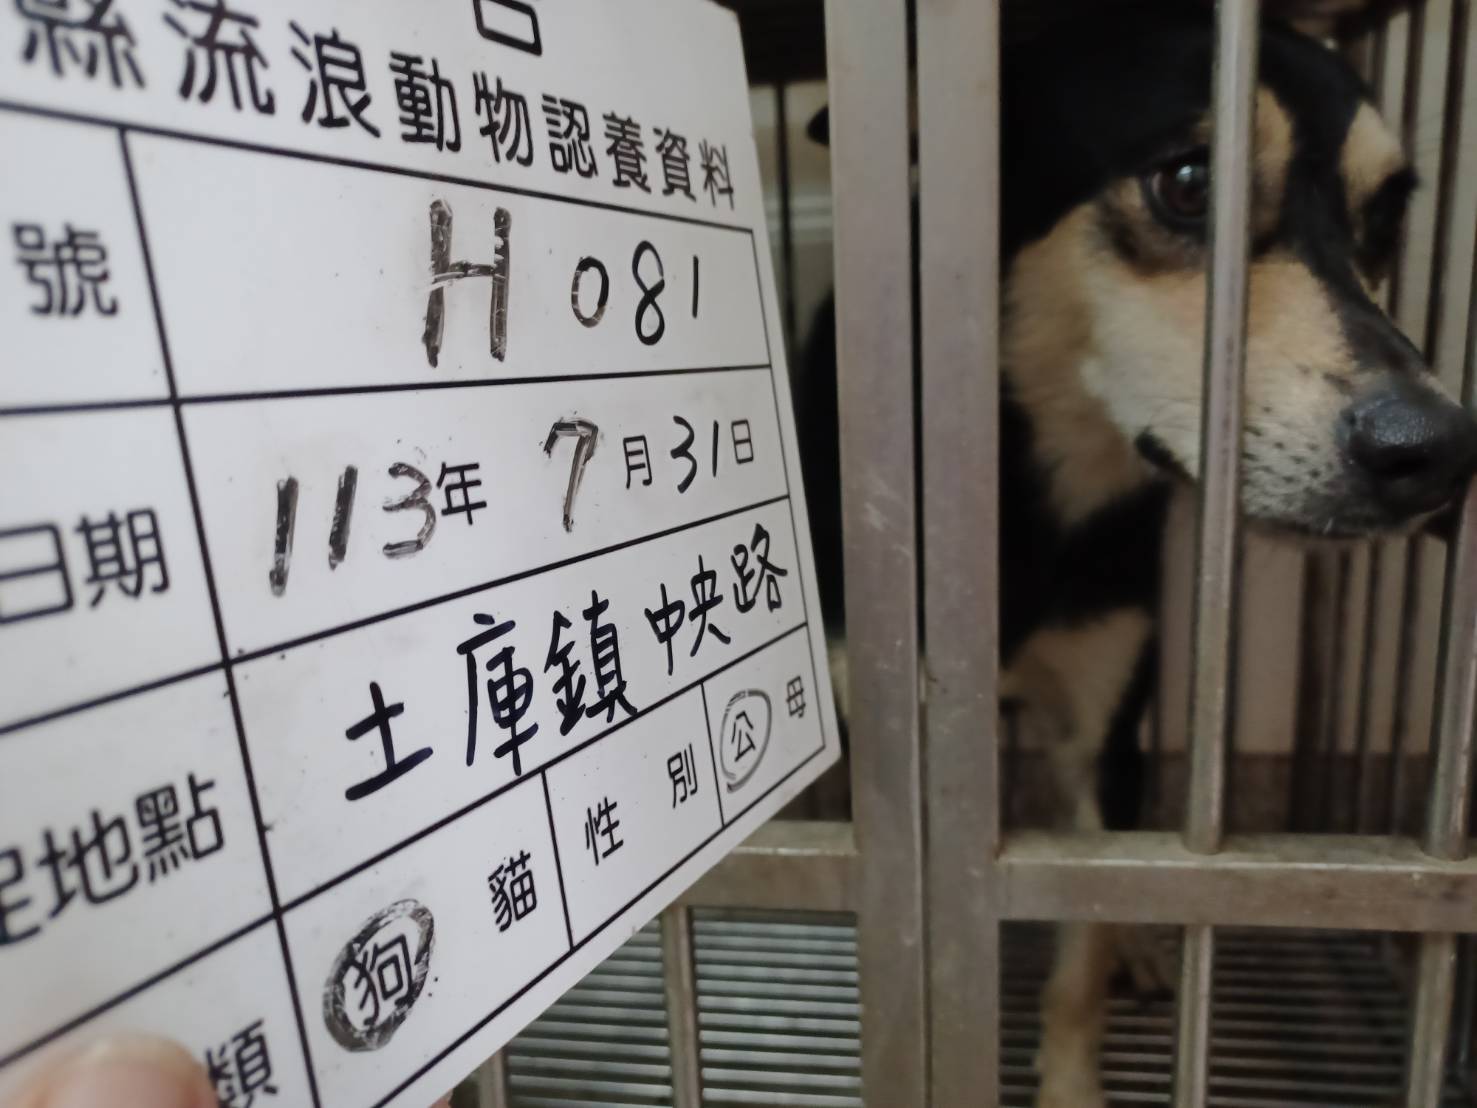 縣流浪動物認養資料
號 H 081
日期 113年 7月31日
地點 土庫鎮中央路
類 狗 貓 性別 公 母